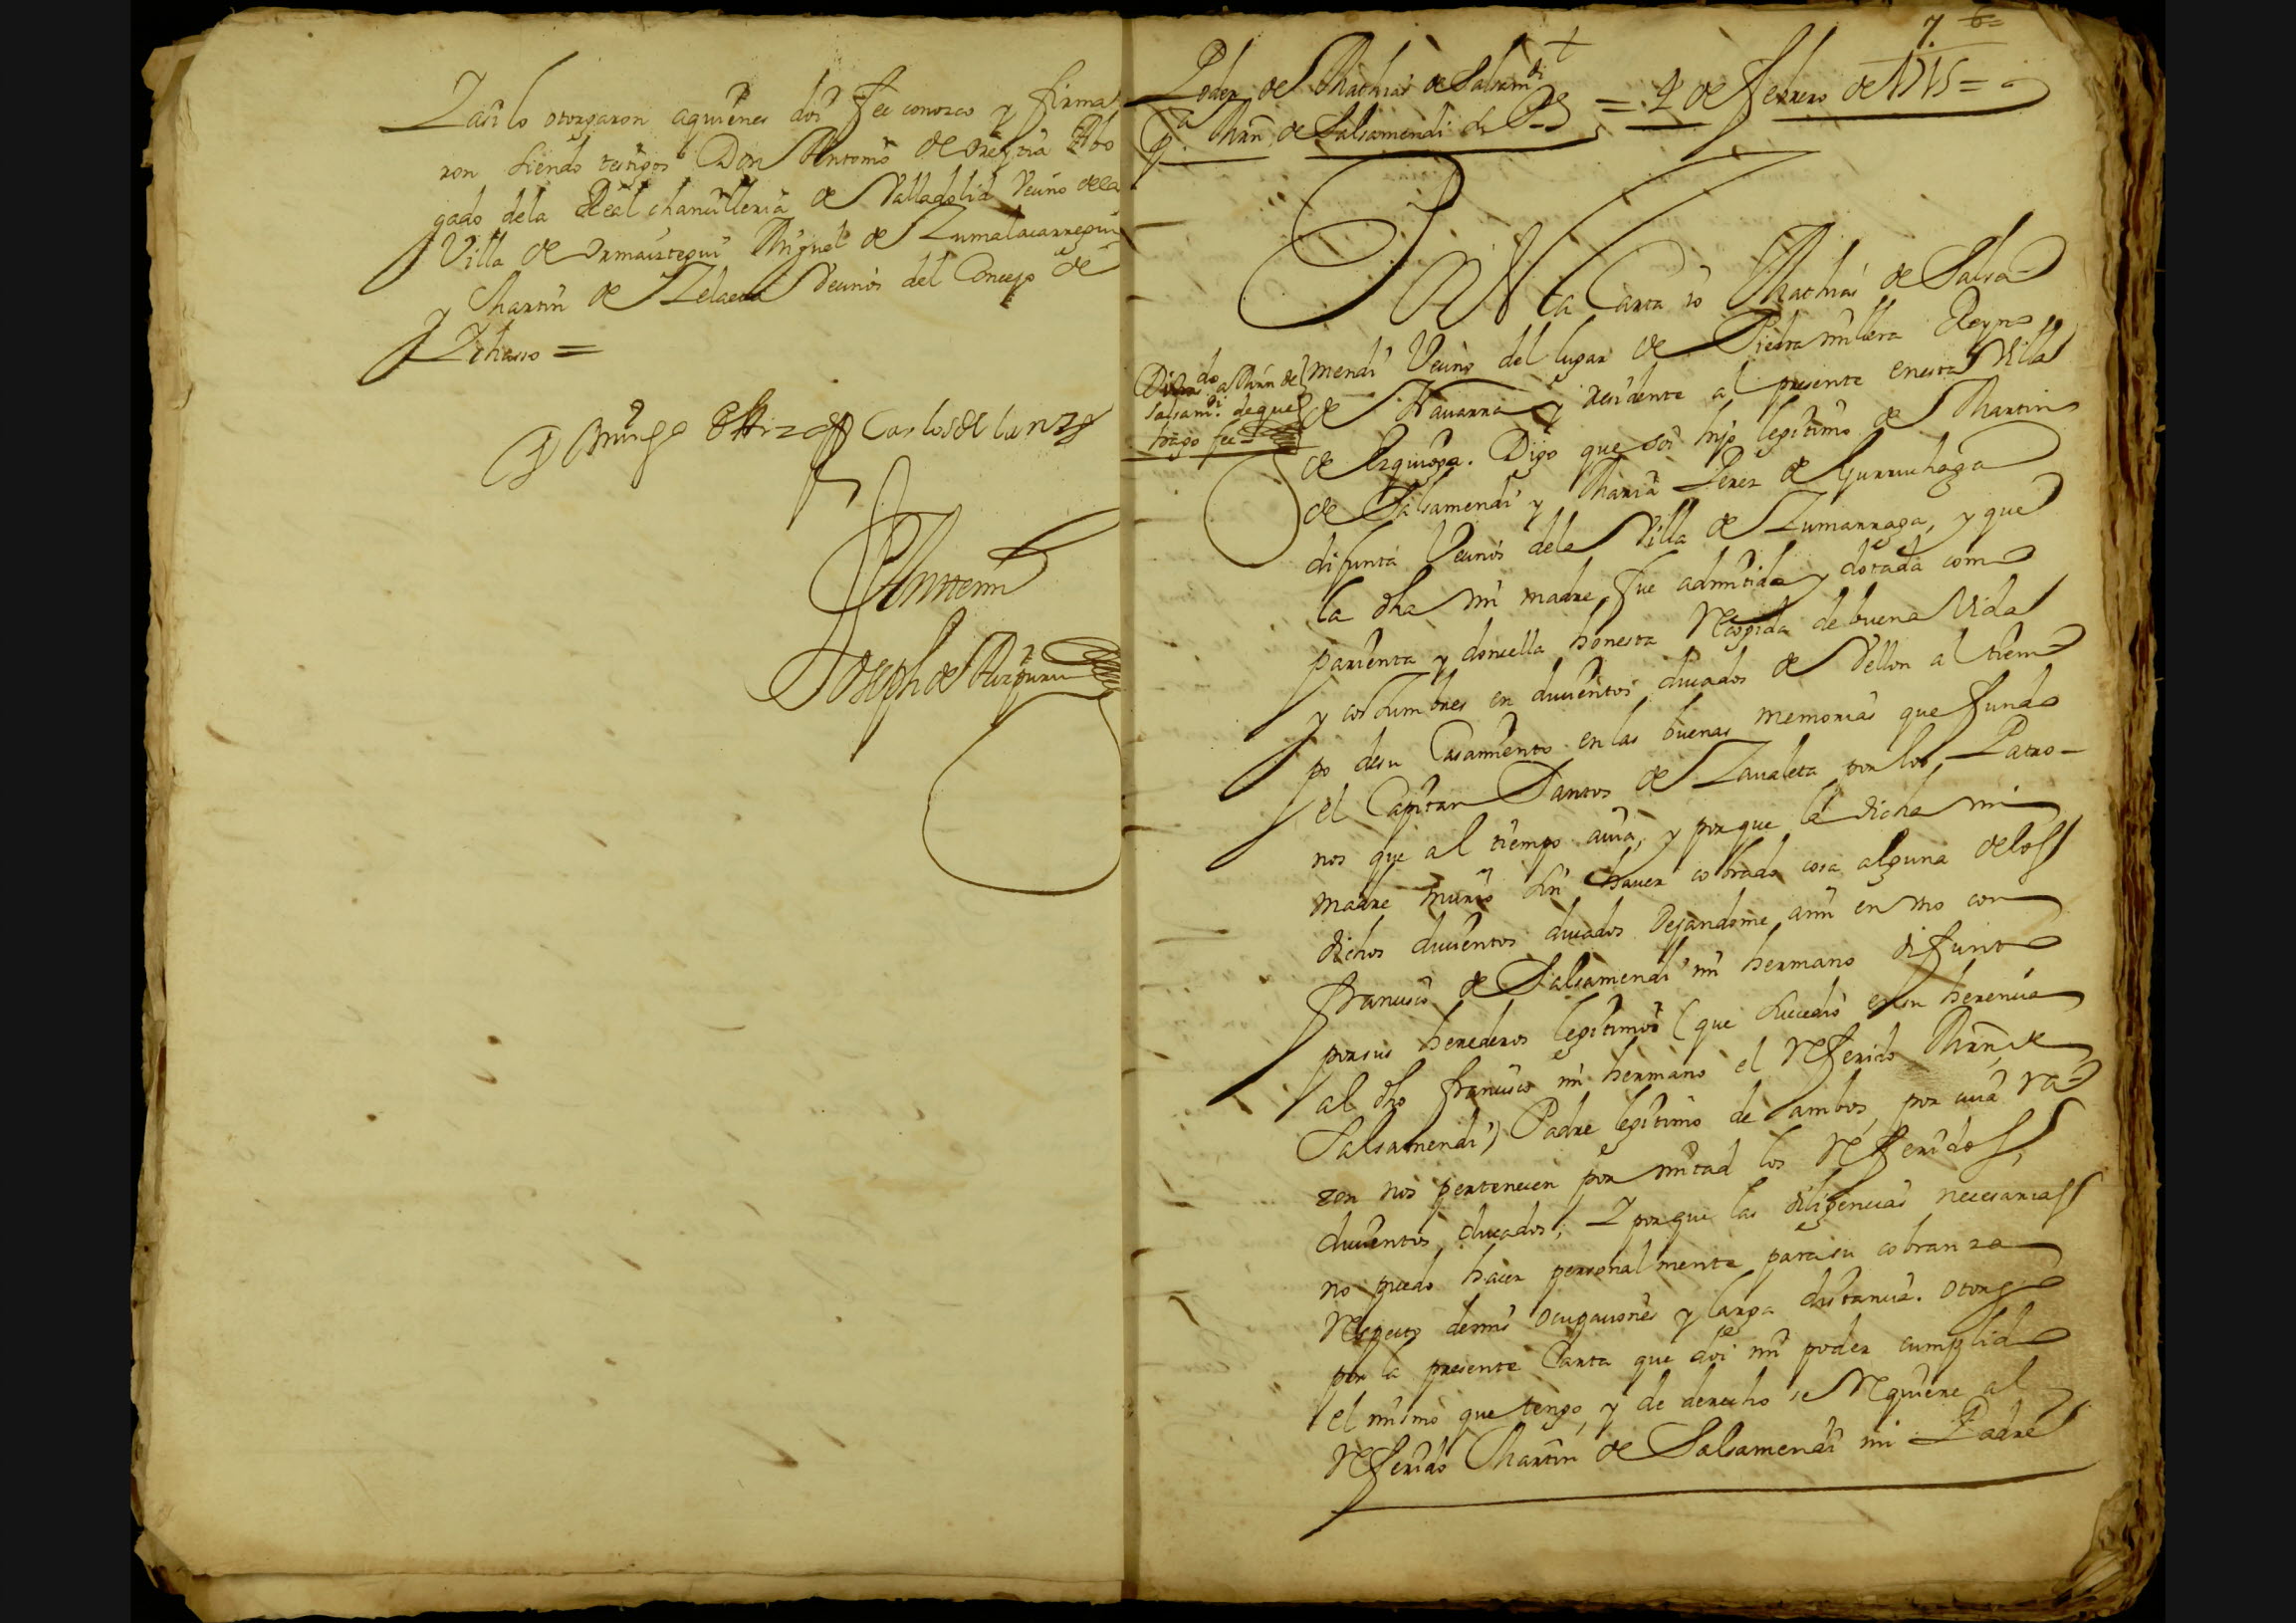 Y asi lo otorgaron aquienes doi fee conozco y firma
ron siendo testigos Don Antonio de Abo
gado dela Real chancilleria de Valladolid Vecino dela
Villa de Ormaiztegui Miguel de Zumalacarregui
y Martin de Zelaeta Vecinos del Concejo de
Ychaso =
Carlos de
Ante mi
Joseph de
7 6=
Poder de Mathias de Salsamdi
pa Mrn de Salsamendi = 2 de febrero de 1715 =
En esta Carta io Mathias de Salsa
mendi Vecino del lugar de Piedramillera Reyno
de Navarra y residente al presente enesta Villa
de Ezquioga. Digo que soi hijo legitimo de Martin
de Salsamendi y Maria Perez de Gurruchaga
difunta Vecinos dela Villa de Zumarraga, y que
la dha mi madre fue admitida y dotada como
parienta y doncella honesta Recogida de buena Vida
y costumbres en ducientos ducados de Vellon al tiem
po desu Casamiento en las buenas memorias que fundo
el Capitan Santos de Zavaleta por los Patro-
nos que al tiempo avia, y porque la dicha mi
madre murio sin haver cobrado cosa alguna delos
dichos ducientos ducados Dejandome ami en uno con
Francisco de Salsamendi mi hermano difunto
porsus herederos legitimos (que sucedio ensu herencia
al dho francisco mi hermano el Referido Mrn de
Salsamendi) Padre legitimo de ambos, por cuia ra-
zon nos pertenecen por mitad los Referidos
ducientos ducados, Y porque las diligencias necesarias
no puedo hacer personalmente parasu cobranza
Respecto demis ocupaciones y larga distancia. otorgo
por la presente Carta que doi mi poder cumplido
el mismo que tengo, y de derecho se Requiere al
Referido Martin de Salsamendi mi Padre
do a Mrn de
Salsamdi deque
hago fee